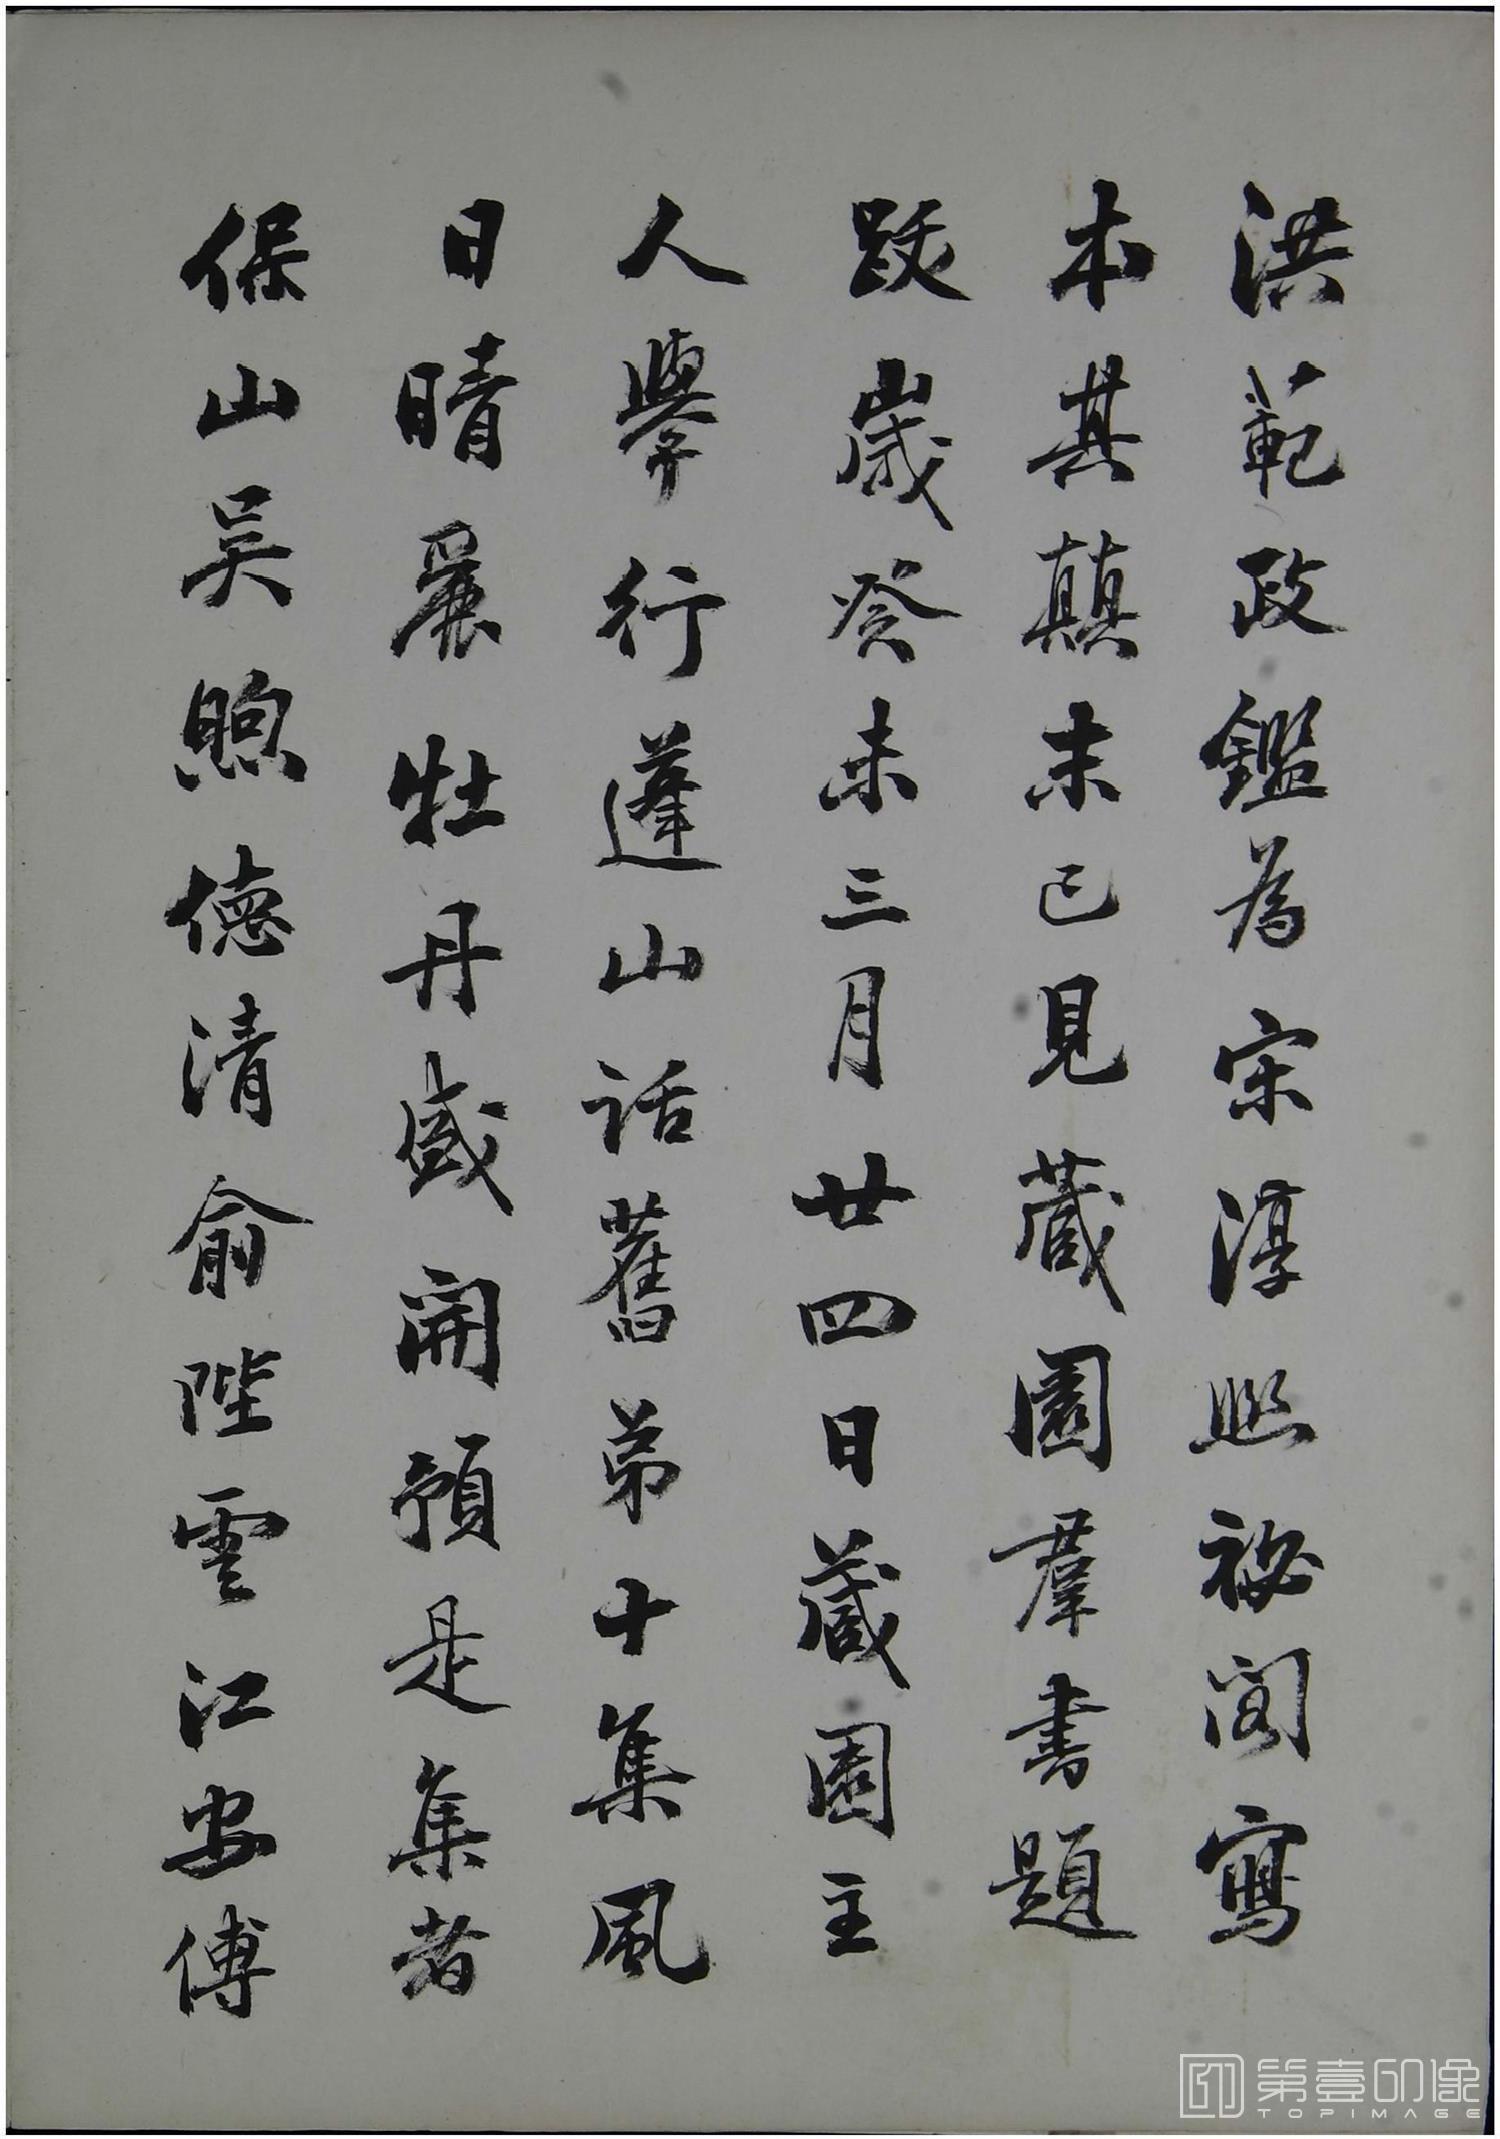 洪範政鑑為宋淳熙祕閣寫
本其顛末已見藏園羣書題
跋歲癸未三月廿四日藏園主
人舉行蓬山話舊弟十集風
日晴麗牡丹盛開預是集者
保山吳煦德清俞陛雲江安傅
第壹印像
TOPIMAGE